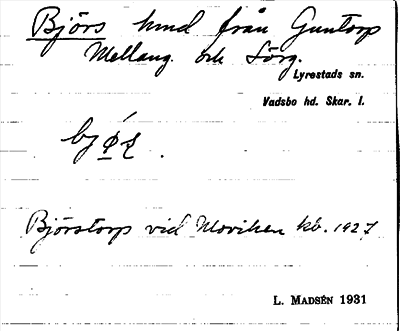 Björs hmd från Guntorp
Mellang. och Sörg.
Lyrestads sn.
Vadsbo hd. Skar. l.
Björstorp vid Moviken kb. 1927
L. MADSÉN 1931